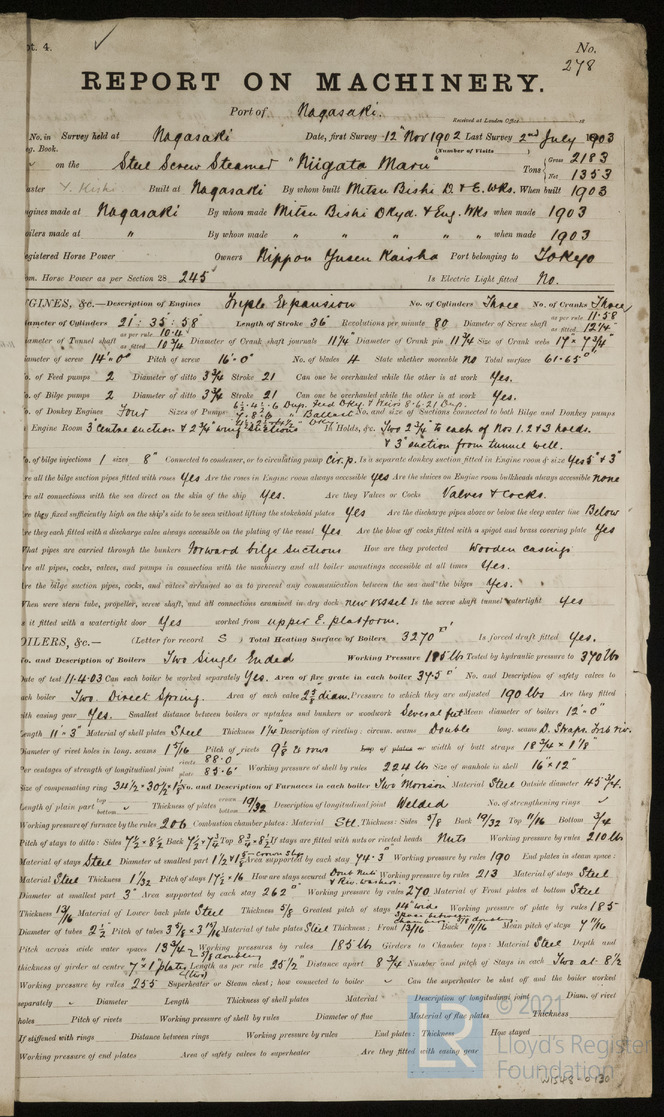 pt. 4.
No. 278
REPORT ON MACHINERY.
Port of Nagasaki.
Received at London Office 18
No. in Survey held at Nagasaki Date, first Survey 12th Nov 1902 Last Survey 2nd July 1903
eg. Book. (Number of Visits )
on the Steel Screw Steamer "Niigata Maru" Tons Gross 2183 Net 1353
aster Y. Kishi Built at Nagasaki By whom built Mitsu Bishi D. & E. Wks. When built 1903
ngines made at Nagasaki By whom made Mitsu Bishi Dkyd. & Eng. Wks when made 1903
oilers made at " By whom made " " " " " when made 1903
egistered Horse Power Owners Nippon Yusen Kaisha Port belonging to Tokyo
om. Horse Power as per Section 28 245 Is Electric Light fitted No.
NGINES, &c.— Description of Engines Triple Expansion No. of Cylinders Three No. of Cranks Three
iameter of Cylinders 21" : 35" : 58" Length of Stroke 36" Revolutions per minute 80 Diameter of Screw shaft as per rule 11.58 as fitted 12 1/4"
iameter of Tunnel shaft as per rule 10.4" as fitted 10 3/4 Diameter of Crank shaft journals 11 1/4 Diameter of Crank pin 11 3/4 Size of Crank webs 17" × 7 3/4
iameter of screw 14'-0" Pitch of screw 16'-0" No. of blades 4 State whether moveable No Total surface 61.65
o. of Feed pumps 2 Diameter of ditto 3 3/4 Stroke 21 Can one be overhauled while the other is at work Yes.
o. of Bilge pumps 2 Diameter of ditto 3 3/4 Stroke 21 Can one be overhauled while the other is at work Yes.
o. of Donkey Engines Four Sizes of Pumps No. and size of Suctions connected to both Bilge and Donkey pumps
Engine Room 3" centre suction & 2 3/4" wing suctions In Holds, &c. Two 2 3/4" to each of Nos 1. 2 & 3 holds.
& 3" suction from tunnel well.
o. of bilge injections 1 sizes 8" Connected to condenser, or to circulating pump Cir. p. Is a separate donkey suction fitted in Engine room & size Yes 5" & 3"
re all the bilge suction pipes fitted with roses Yes Are the roses in Engine room always accessible Yes Are the sluices on Engine room bulkheads always accessible none
re all connections with the sea direct on the skin of the ship Yes. Are they Valves or Cocks Valves & Cocks.
re they fixed sufficiently high on the ship's side to be seen without lifting the stokehold plates Yes Are the discharge pipes above or below the deep water line Below
re they each fitted with a discharge valve always accessible on the plating of the vessel Yes Are the blow off cocks fitted with a spigot and brass covering plate Yes
What pipes are carried through the bunkers Forward bilge suctions How are they protected Wooden casings
re all pipes, cocks, valves, and pumps in connection with the machinery and all boiler mountings accessible at all times Yes.
re the bilge suction pipes, cocks, and valves arranged so as to prevent any communication between the sea and the bilges Yes.
When were stern tube, propeller, screw shaft, and all connections examined in dry dock new vessel Is the screw shaft tunnel watertight Yes
s it fitted with a watertight door Yes worked from upper E. platform.
OILERS, &c.— (Letter for record S ) Total Heating Surface of Boilers 3270 Is forced draft fitted Yes.
o. and Description of Boilers Two Single Ended Working Pressure 185 lbs Tested by hydraulic pressure to 370 lbs
ate of test 11.4.03 Can each boiler be worked separately Yes. Area of fire grate in each boiler 37.5 No. and Description of safety valves to
ach boiler Two Direct Spring. Area of each valve 2 3/8 diam. Pressure to which they are adjusted 190 lbs Are they fitted
ith easing gear Yes. Smallest distance between boilers or uptakes and bunkers or woodwork Several feet Mean diameter of boilers 12'-0"
ength 11'-3" Material of shell plates Steel Thickness 1 1/4" Description of riveting: circum. seams Double long. seams D. Straps. Treb riv.
iameter of rivet holes in long. seams 1 5/16 Pitch of rivets 9 1/8 lap of plates or width of butt straps 18 3/4 × 1 1/8"
er centages of strength of longitudinal joint rivets 88.0 plate 85.6 Working pressure of shell by rules 224 lbs Size of manhole in shell 16" × 12"
ize of compensating ring No. and Description of Furnaces in each boiler Two Morison Material Steel Outside diameter 45 3/4.
ength of plain part top bottom Thickness of plates crown bottom 19/32 Description of longitudinal joint Welded No. of strengthening rings
Working pressure of furnace by the rules 206 Combustion chamber plates: Material Stl. Thickness: Sides 5/8 Back 19/32 Top 11/16 Bottom 3/4
Pitch of stays to ditto: Sides 7 1/2 × 8 1/2 Back 7 1/2 × 7 3/4 Top 8 3/4 × 8 1/2 If stays are fitted with nuts or riveted heads Nuts Working pressure by rules 210 lb
Material of stays Steel Diameter at smallest part Area supported by each stay 74.3 Working pressure by rules 190 End plates in steam space:
Material Steel Thickness 1 1/32 Pitch of stays 17 1/2 × 16 How are stays secured Doub Nuts & Riv. washer. Working pressure by rules 213 Material of stays Steel
Diameter at smallest part 3" Area supported by each stay 262 Working pressure by rules 270 Material of Front plates at bottom Steel
Thickness 13/16 Material of Lower back plate Steel Thickness 5/8 Greatest pitch of stays 14" wide Working pressure of plate by rules 185
Diameter of tubes 2 1/2 Pitch of tubes Material of tube plates Steel Thickness: Front 13/16 Back 11/16 Mean pitch of stays
Pitch across wide water spaces 13 3/4 Working pressures by rules 185 lb Girders to Chamber tops: Material Steel Depth and
thickness of girder at centre 7" × 1" plates (two) Length as per rule 25 1/2" Distance apart 8 3/4 Number and pitch of Stays in each Two at 8 1/2
Working pressure by rules 255 Superheater or Steam chest; how connected to boiler Can the superheater be shut off and the boiler worked
separately Diameter Length Thickness of shell plates Material Description of longitudinal joint Diam. of rivet
holes Pitch of rivets Working pressure of shell by rules Diameter of flue Material of flue plates Thickness
If stiffened with rings Distance between rings Working pressure by rules End plates: Thickness How stayed
Working pressure of end plates Area of safety valves to superheater Are they fitted with easing gear
© 2021
LR
Lloyd's Register
Foundation
W1548-0130